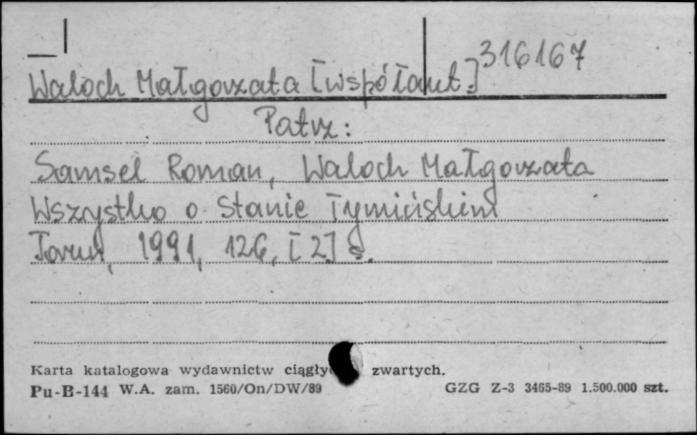 316167
Waloch Małgorzata [współaut.]
Patrz:
Samsel Roman, Waloch Małgorzata
Wszystko o Stanie Tymińskim
Toruń, 1991, 126, [2] s.
Karta katalogowa wydawnictw ciągły zwartych.
Pu-B-144 W.A. zam. 1560/On/DW/89 GZG Z-3 3465-89 1.500.000 szt.